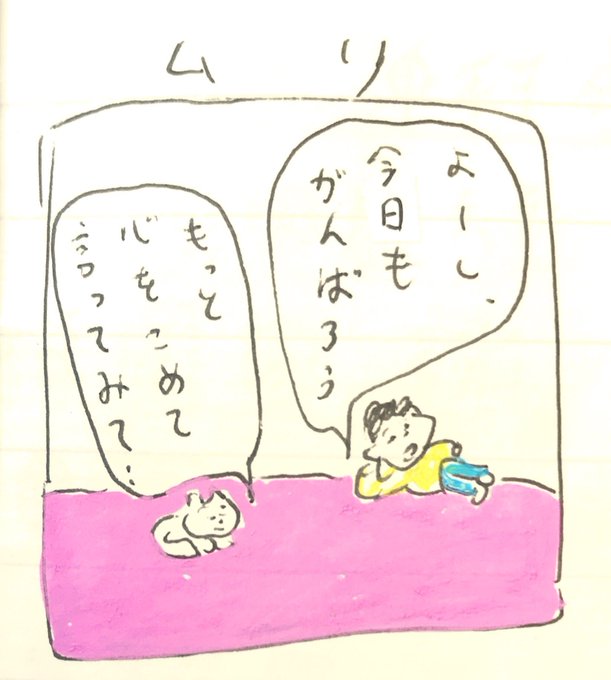 ムリ
よーし、
今日も
がんばろう
もっと
心をこめて
言ってみて…